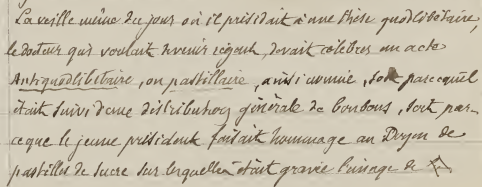 La veille même du jour où il présidait à une thèse quodlibétaire,
le docteur qui voulait devenir régent, devait célébrer un acte
Antiquodlibétaire, ou pastillaire, ainsi nommé, soit parcequ'il
était suivi d'une distribution générale de bonbons, soit par-
ceque le jeune président faisait hommage au Doyen de
pastilles de sucre sur lesquelles était gravée l'image de